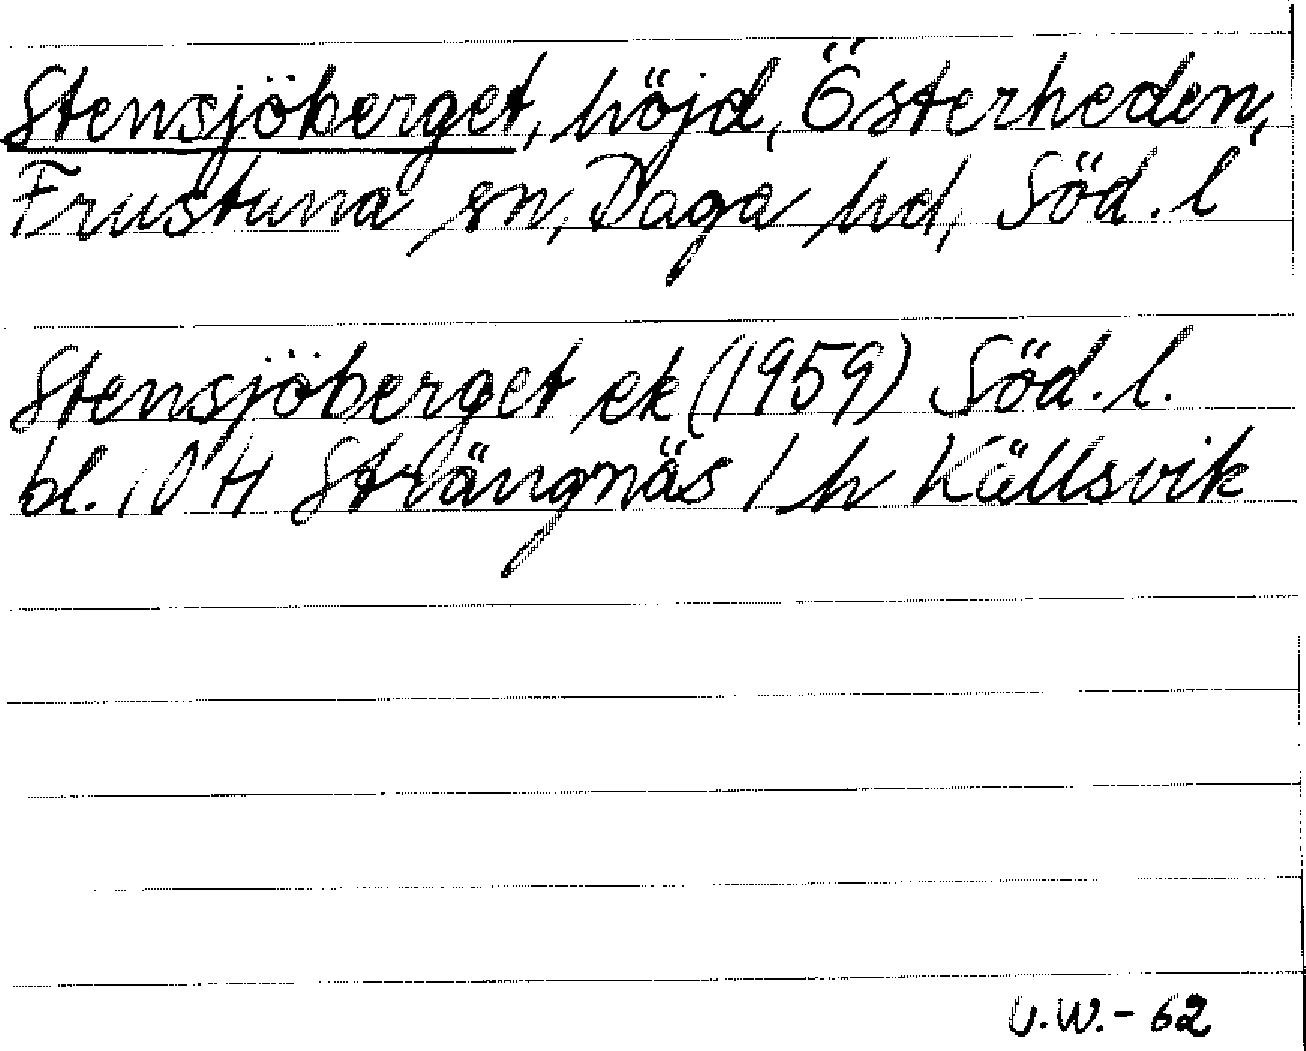 Stensjöberget, höjd, Österheden,
Frustuna sn, Daga hd, Söd. l
Stensjöberget ek (1959) Söd. l.
bl. 10 H Strängnäs 1 h Källsvik
U.W. - 62